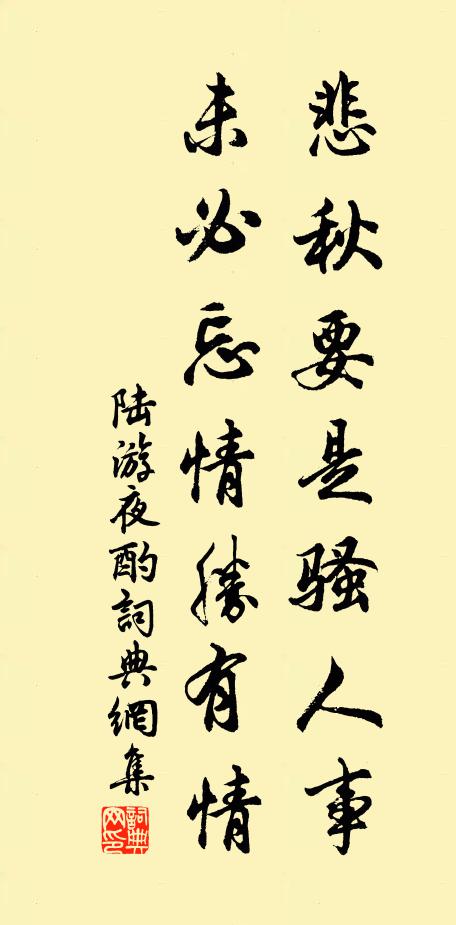 悲秋要是骚人事
未必忘情勝有情
陆游夜酌詞典網集
詞典网印